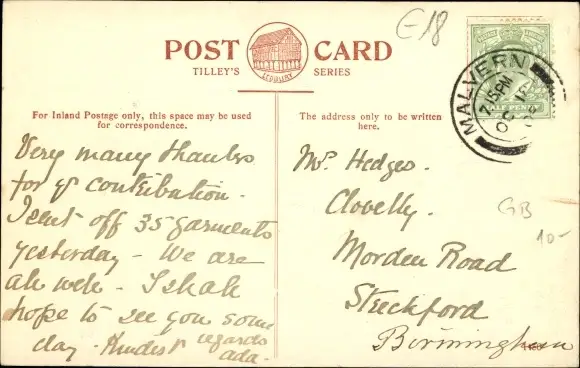 E18
POST CARD
TILLEY'S SERIES
LEDBURY
MALVERN
7.15PM
OC
HALF PENNY
For Inland Postage only, this space may be used
for correspondence.
The address only to be written
here.
Very many thanks
for yr contribution.
I sent off 35 garments
yesterday - We are
all well - I shall
hope to see you some
day - Kindest regards
Ada -
Mrs. Hedges.
Clovelly.
Morden Road
Stechford
Birmingham
GB
10-